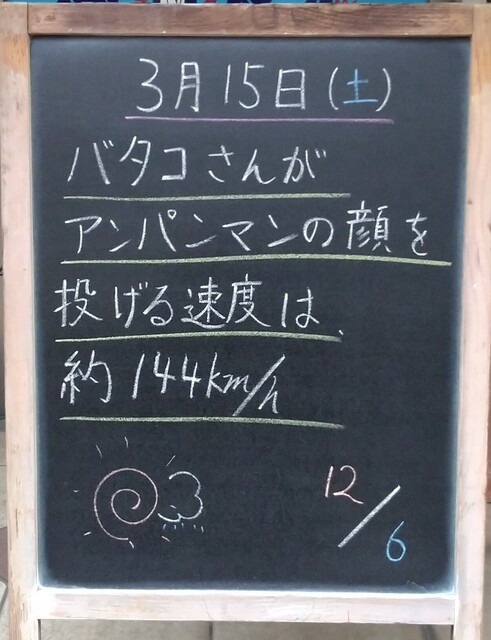 3月15日(土)
バタコさんが
アンパンマンの顔を
投げる速度は、
約144km/h
12/6